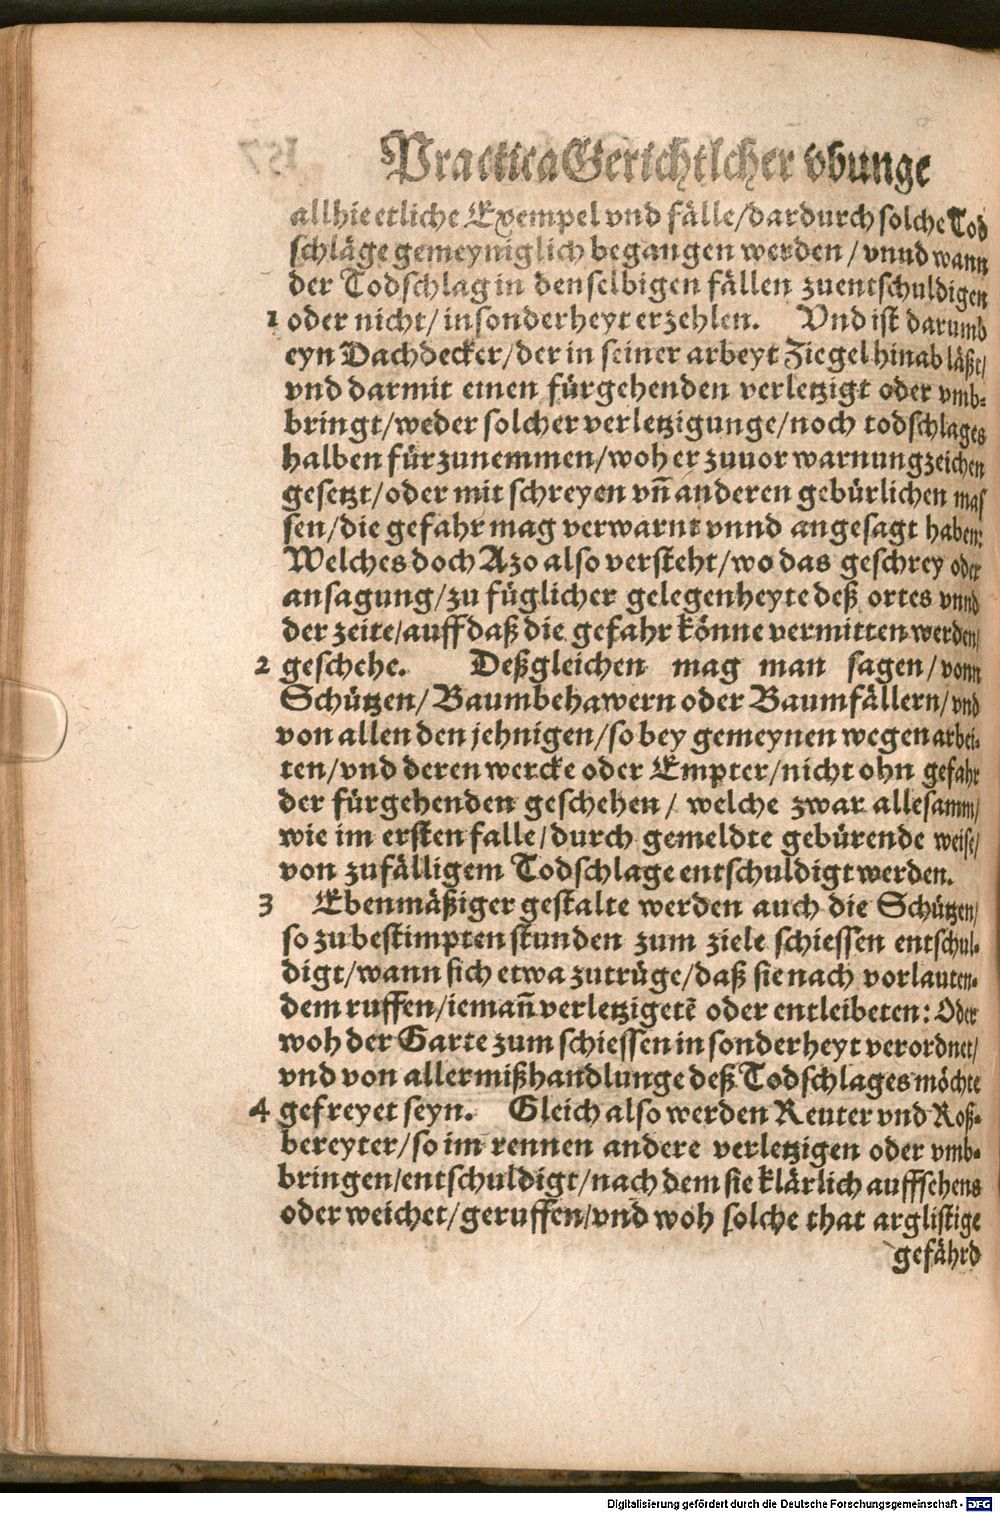 Practica Gerichtlcher vbunge
allhie etliche Exempel vnd fälle/dardurch solche Tod
schläge gemeyniglich begangen werden/vnnd wann
der Todschlag in denselbigen fällen zuentschuldigen
1 oder nicht/insonderheyt erzehlen. Vnd ist darumb
eyn Dachdecker/der in seiner arbeyt Ziegel hinab läßt/
vnd darmit einen fürgehenden verletzigt oder vmb-
bringt/weder solcher verletzigunge/noch todschlages
halben fürzunemmen/woh er zuuor warnungzeichen
gesetzt/oder mit schreyen vñ anderen gebürlichen mas
sen/die gefahr mag verwarnt vnnd angesagt haben:
Welches doch Azo also versteht/wo das geschrey oder
ansagung/zu füglicher gelegenheyte deß ortes vnnd
der zeite/auff daß die gefahr könne vermitten werden/
2 geschehe. Deßgleichen mag man sagen/vonn
Schützen/Baumbehawern oder Baumfällern/vnd
von allen den jehnigen/so bey gemeynen wegen arbei-
ten/vnd deren wercke oder Empter/nicht ohn gefahr
der fürgehenden geschehen/welche zwar allesamm/
wie im ersten falle/durch gemeldte gebürende weise/
von zufälligem Todschlage entschuldigt werden.
3 Ebenmäßiger gestalte werden auch die Schützen/
so zu bestimpten stunden zum ziele schiessen entschul-
digt/wann sich etwa zutrüge/daß sie nach vorlauten-
dem ruffen/iemañ verletzigetē oder entleibeten: Oder
woh der Garte zum schiessen in sonderheyt verordnet/
vnd von aller mißhandlunge deß Todschlages möchte
4 gefreyet seyn. Gleich also werden Reuter vnd Roß-
bereyter/so im rennen andere verletzigen oder vmb-
bringen/entschuldigt/nach dem sie klärlich auffsehens
oder weichet/geruffen/vnd woh solche that arglistige
gefährd
Digitalisierung gefördert durch die Deutsche Forschungsgemeinschaft - DFG